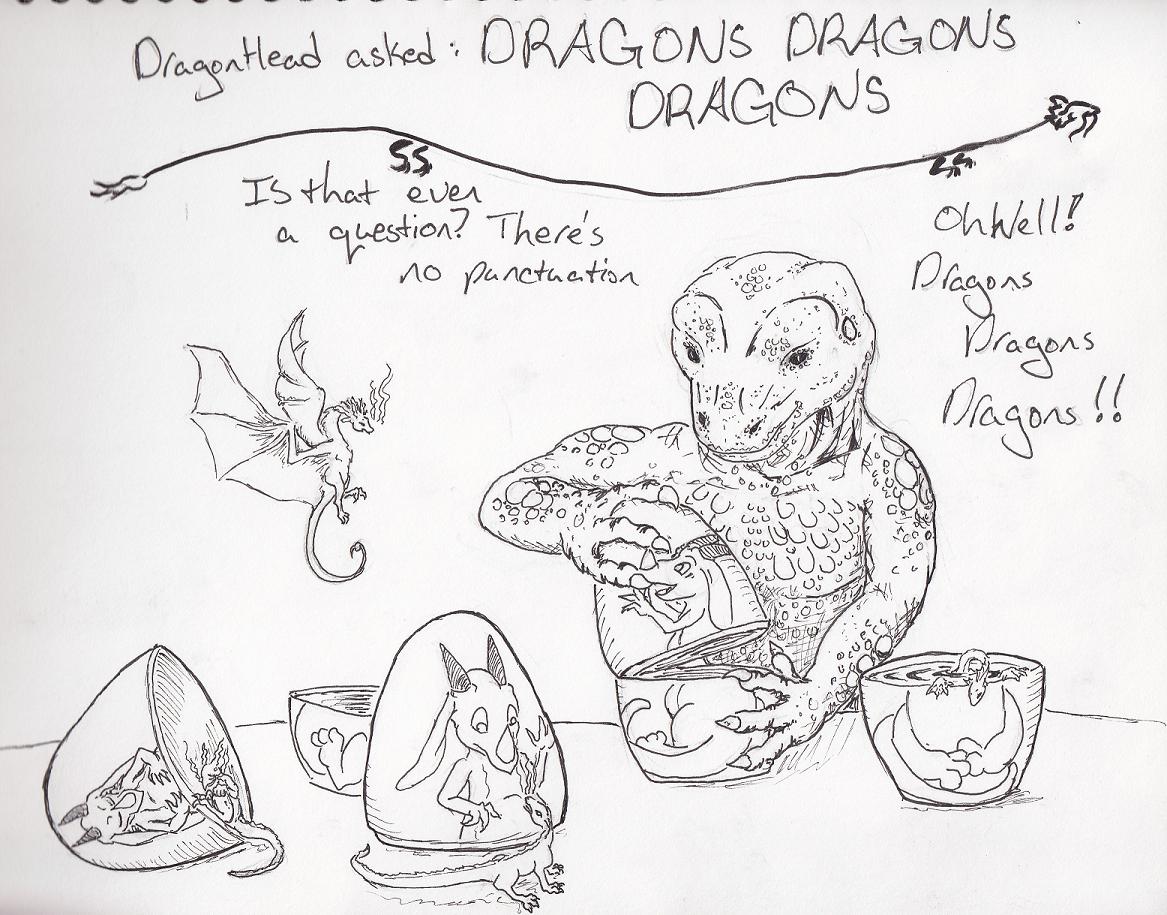 DragonHead asked: DRAGONS DRAGONS
DRAGONS
Is that even
a question? There's
no punctuation
Oh Well!
Dragons
Dragons
Dragons!!